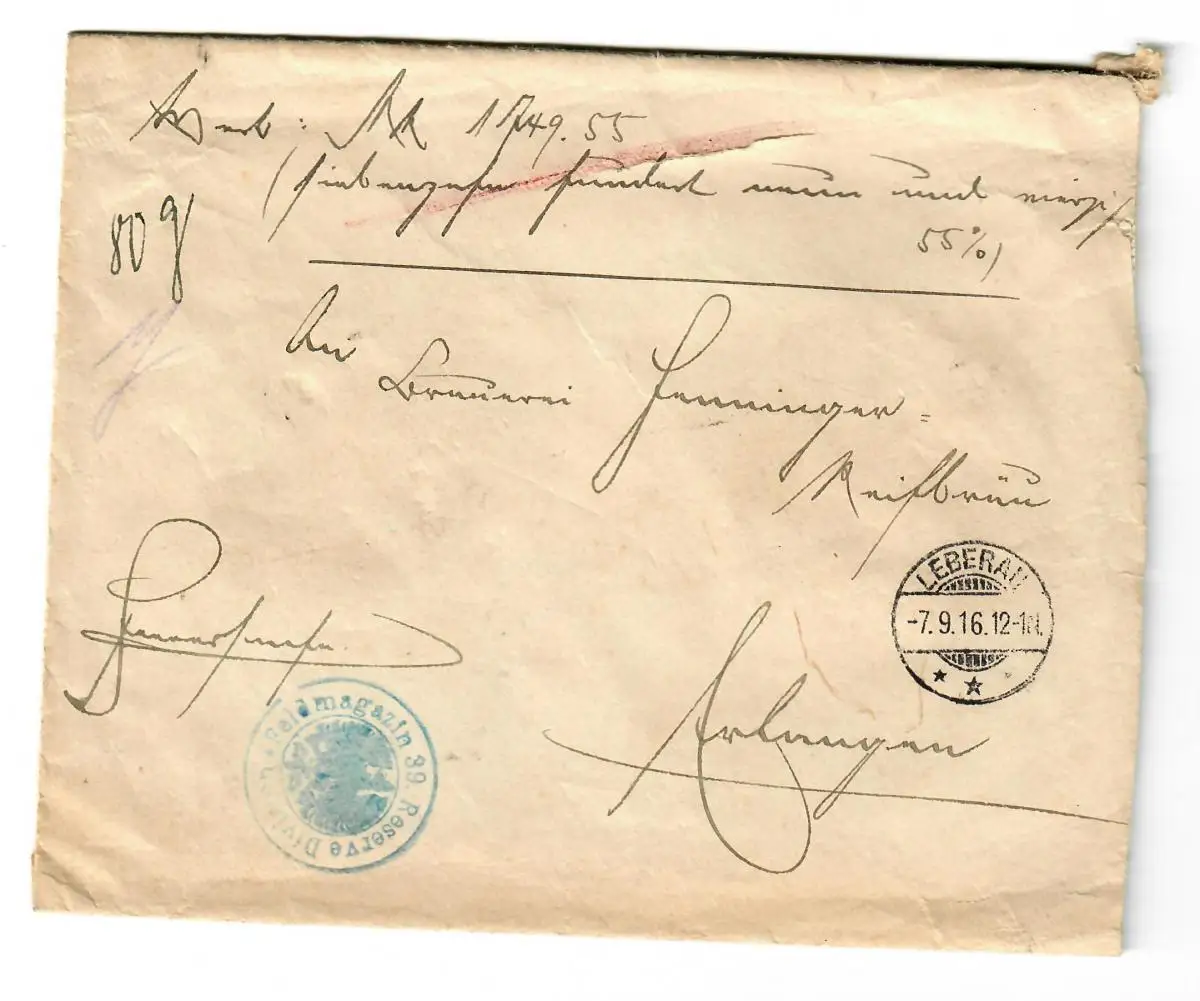 Wert: Mk 1749.55
(siebenzehn hundert neun und vierzig
55%)
80 g
An
Brauerei Henninger-
Reifbräu
LEBERAU
-7.9.16.12-1N.
Heeressache.
Erlangen
Feldmagazin 39. Reserve Division